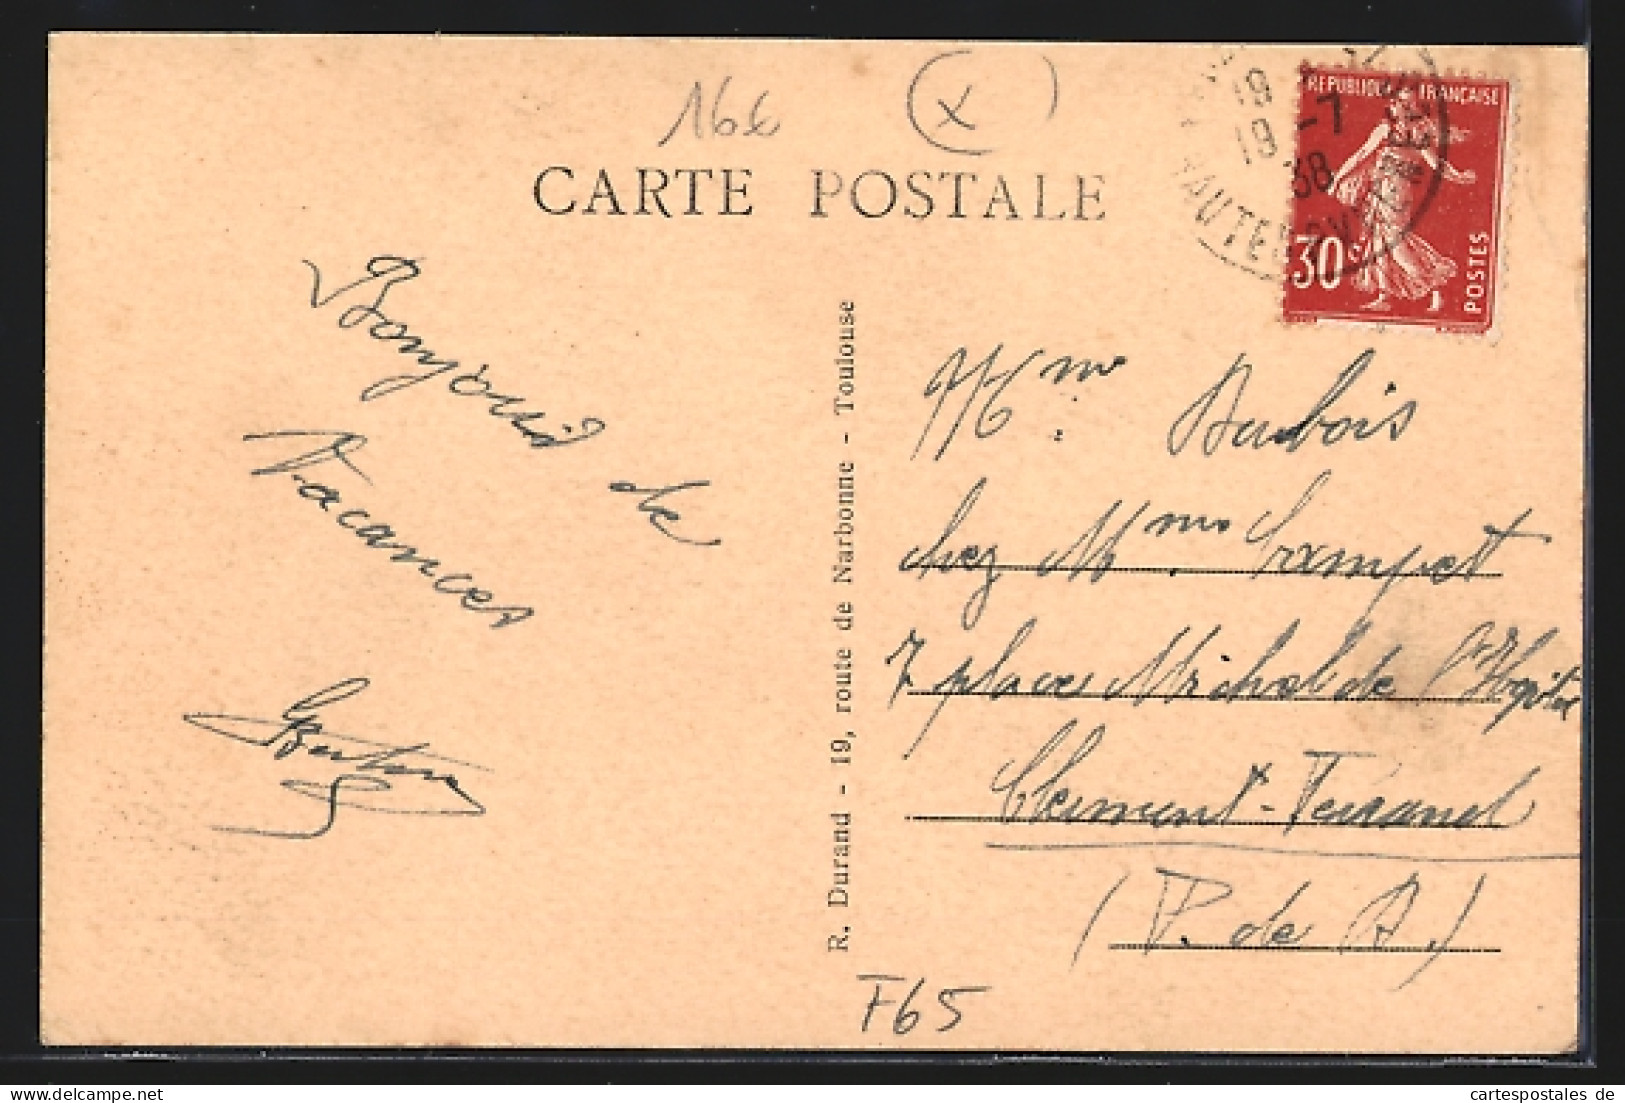 16€ (X)
CARTE POSTALE
RÉPUBLIQUE FRANÇAISE
30c
POSTES
19
19 -7
38
Bonjour de
Vacances
R. Durand - 19, route de Narbonne - Toulouse
Mme Dubois
chez Mme
7 place Michel de l'Hopital
Clermont-Ferrand
(P. de D.)
F65
cartespostales de